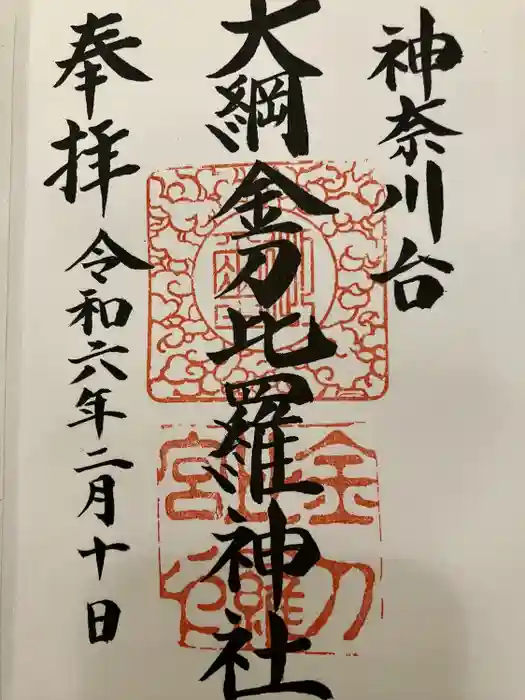 神奈川台
大綱金刀比羅神社
奉拝
令和六年二月十日